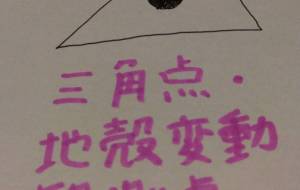 三角点・
地殻変動